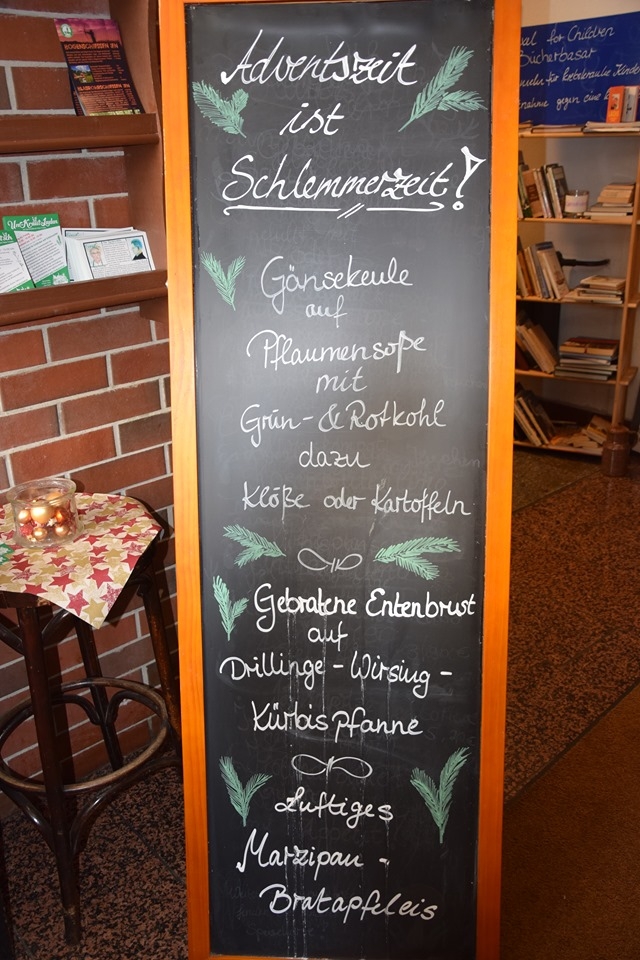 Adventszeit
ist
Schlemmerzeit!
Gänsekeule
auf
Pflaumensoße
mit
Grün- & Rotkohl
dazu
Klöße oder Kartoffeln
Gebratene Entenbrust
auf
Drillinge - Wirsing -
Kürbispfanne
Luftiges
Marzipan -
Bratapfeleis
for Children
Bücherbasar